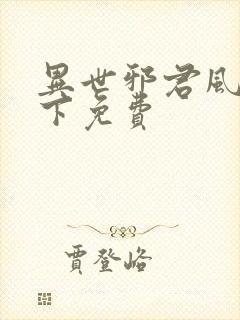 異世邪君風
下免費
賈登峪